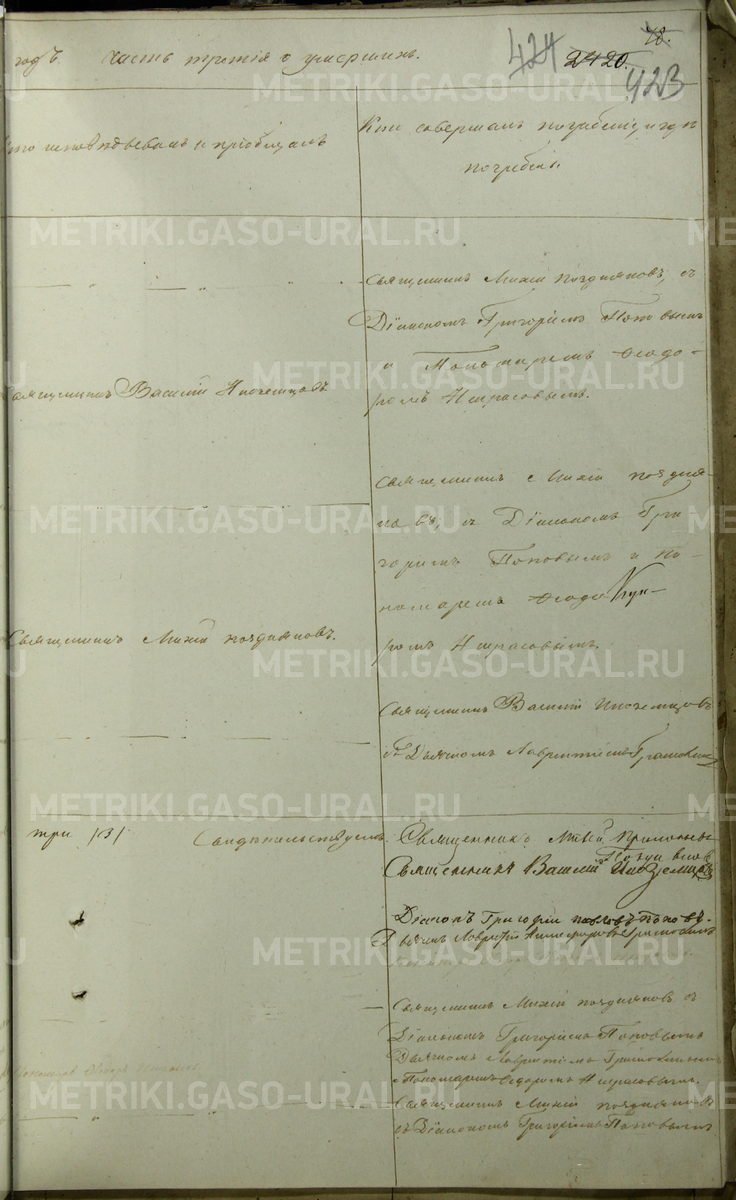 годъ часть третія о умершихъ.
424 2420. 423
исповѣдывалъ и пріобщалъ
Кто совершалъ погребеніе и гдѣ
погребены.
Священникъ Михей Поздняковъ, съ
Діакономъ Григоріемъ Поповымъ
и Пономаремъ Ѳеодо-
ромъ Некрасовымъ.
Священникъ Василій Иноземцовъ
Священникъ Михей Поздня-
ковъ, съ Діакономъ Гри
горіемъ Поповымъ и по-
номаремъ Ѳеодо
ромъ Некрасовымъ.
Священникъ Михей Поздняковъ.
Священникъ Василій Иноземцовъ
съ Дьячкомъ Лаврентіемъ
три /3/ Свидѣтельствуемъ
Священникъ Михей
Поздняковъ
Священникъ Василій Иноземцовъ
Діаконъ Григорій Поповъ.
Дьячекъ Лаврентій
Священникъ Михей Поздняковъ съ
Діакономъ Григоріемъ Поповымъ
Дьячкомъ Лаврентіемъ
и Пономаремъ Ѳедоромъ Некрасовымъ.
Священникъ Михей Поздняковъ
съ Діакономъ Григоріемъ Поповымъ
METRIKI.GASO-URAL.RU